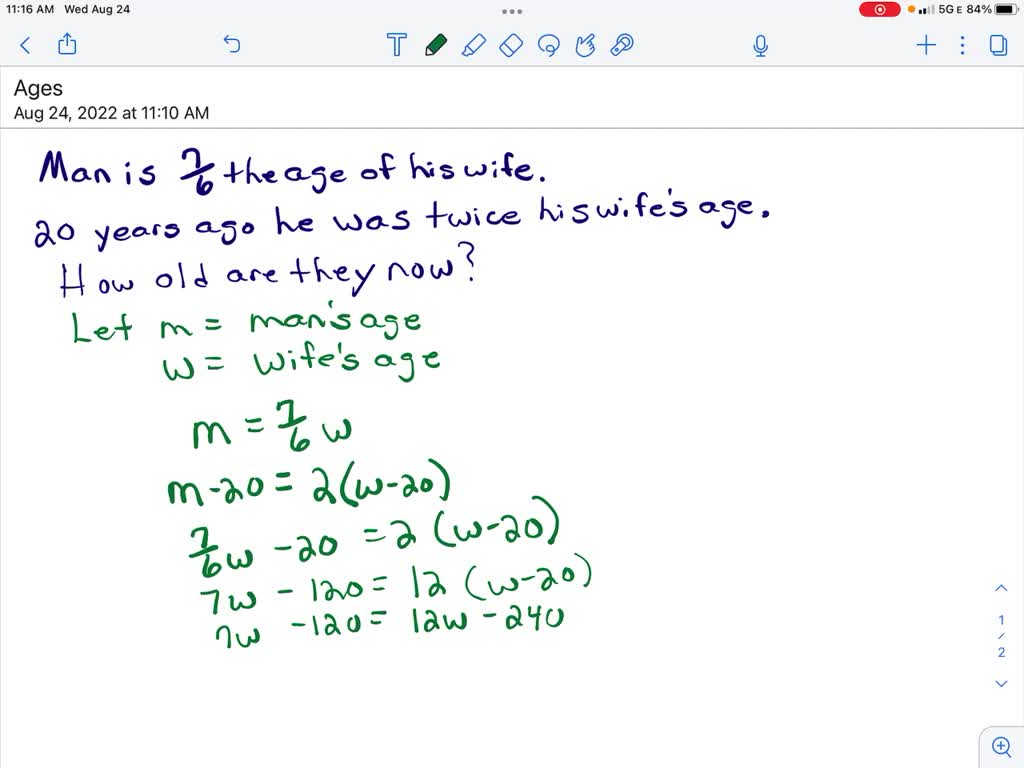 11:16 AM Wed Aug 24
5G E 84%
T
Ages
Aug 24, 2022 at 11:10 AM
Man is 7/6 the age of his wife.
20 years ago he was twice his wife's age.
How old are they now?
Let m = man's age
w = wife's age
m = 7/6 w
m - 20 = 2(w - 20)
7/6 w - 20 = 2(w - 20)
7w - 120 = 12(w - 20)
7w - 120 = 12w - 240
1
/
2